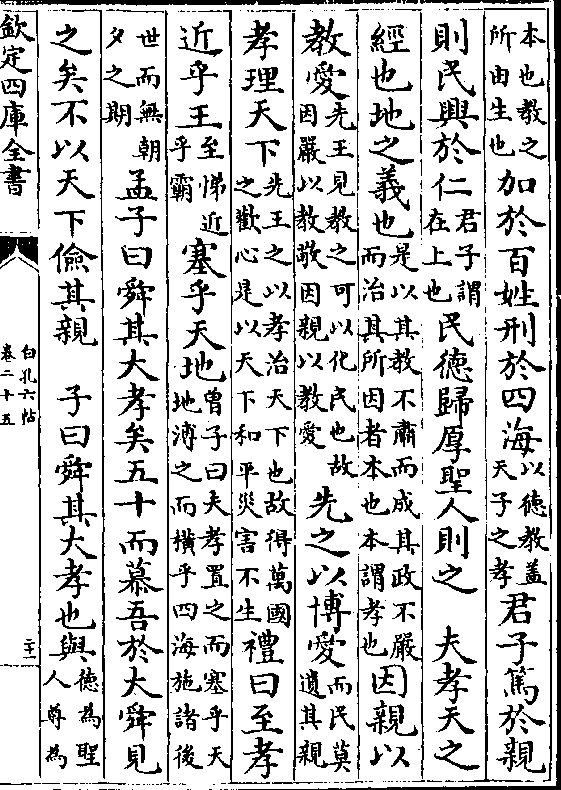 本也教之所由生也加於百姓刑於四海以德教蓋天子之孝君子篤於親
則民興於仁君子謂在上也民德歸厚聖人則之　夫孝天之
經也地之義也是以其教不肅而成其政不嚴而治其所因者本也本謂孝也因親以
教愛先王見教之可以化民也故因嚴以教敬因親以教愛先之以博愛而民莫遺其親
孝理天下先王之以孝治天下也故得萬國之歡心是以天下和平災害不生禮曰至孝
近乎王至悌近乎霸塞乎天地曾子曰夫孝置之而塞乎天地溥之而橫乎四海施諸後
世而無朝夕之期孟子曰舜其大孝矣五十而慕吾於大舜見
之矣不以天下儉其親　子曰舜其大孝也與德為聖人尊為
欽定四庫全書
白孔六帖
卷二十五